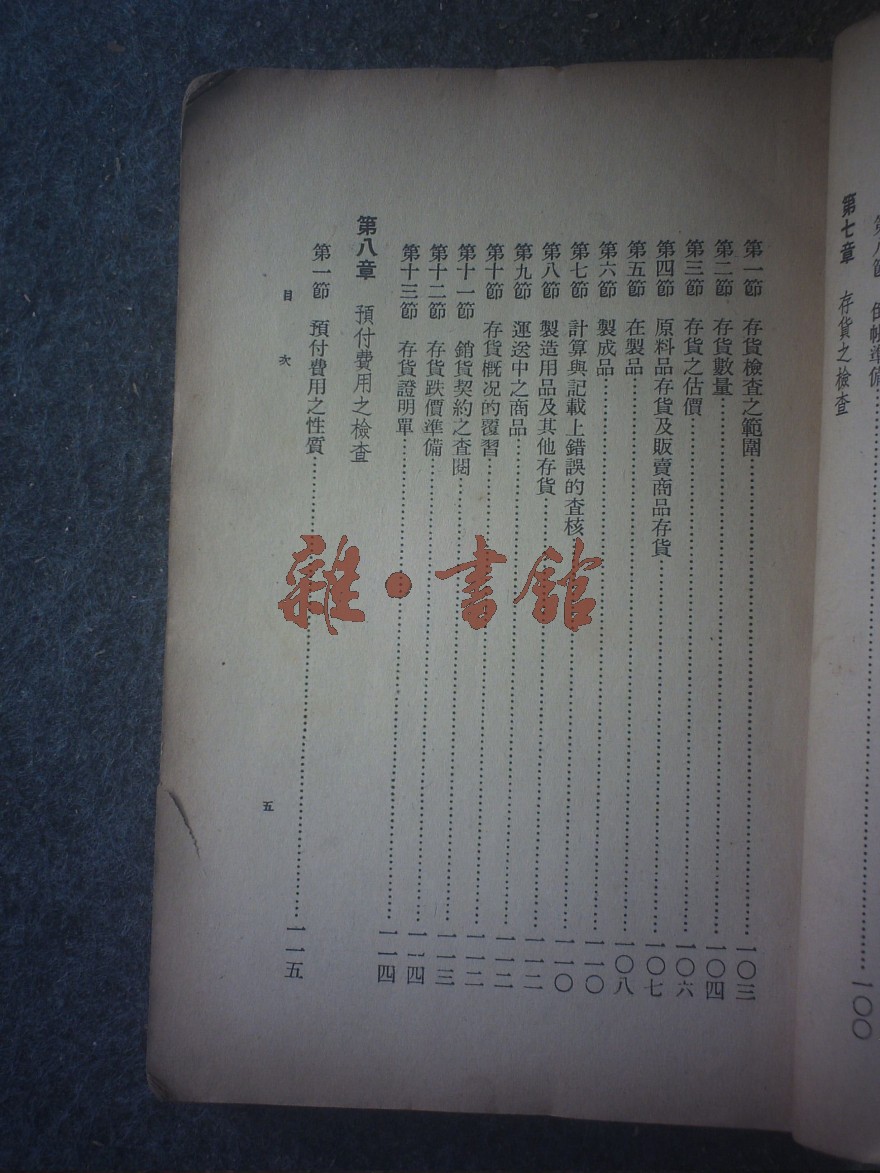 第八節 倒帳準備……一〇〇
第七章 存貨之檢查
第一節 存貨檢查之範圍……一〇三
第二節 存貨數量……一〇四
第三節 存貨之估價……一〇六
第四節 原料品存貨及販賣商品存貨……一〇七
第五節 在製品……一〇八
第六節 製成品……一一〇
第七節 計算與記載上錯誤的查核……一一〇
第八節 製造用品及其他存貨……一一二
第九節 運送中之商品……一一二
第十節 存貨概況的覆習……一一二
第十一節 銷貨契約之查閱……一一三
第十二節 存貨跌價準備……一一四
第十三節 存貨證明單……一一四
第八章 預付費用之檢查
第一節 預付費用之性質……一一五
目次
五
雜·書館